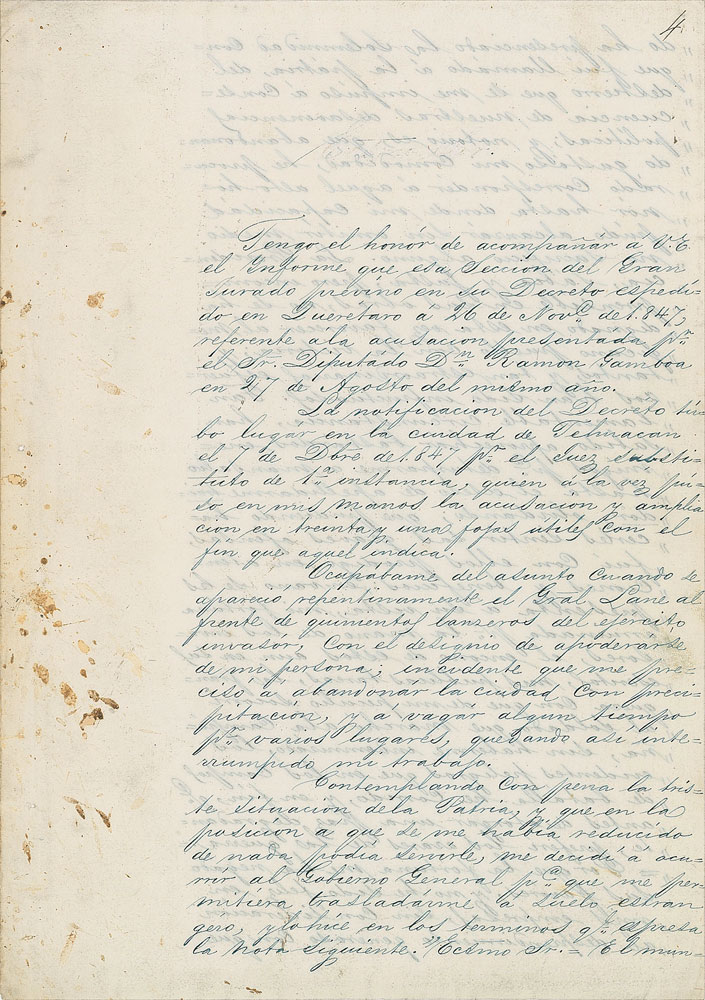 4
Tengo el honór de acompañár á V.E.
el Informe que esa Seccion del Gran
Jurado previno en su Decreto espedi=
do en Querétaro á 26 de Nov.e de 1.847,
referente á la acusacion presentada p.r
el Sr. Diputádo D.n Ramon Gamboa
en 27 de Agosto del mismo año.
La notificacion del Decréto tú=
bo lugár en la ciudad de Tehuacan
el 7 de Dbre de 1.847 p.r el Juez substi=
tuto de 1.a instancia, quien á la vez pu=
so en mis manos la acusacion y amplia
cion en treinta y una fojas utiles con el
fin que aquel indica.
Ocupábame del asunto cuando se
apareció repentinamente el Gral. Lane al
frente de quinientos lanseros del ejército
invasór, con el designio de apoderárse
de mi persona; incidente que me pre=
cisó a abandonár la ciudad con preci=
pitación, y á vagár algun tiempo
p.r varios lugáres, quedando asi inte=
rrumpido mi trabajo.
Contemplando con pena la tris=
te situacion dela Patria, y que en la
posición a que se me habia reducido
de nada podia servirle, me decidí á ocu=
rrir al Gobierno General p.a que me per=
mitiera trasladárme á suelo estran
géro, y lo hice en los terminos q.e espresa
la nota siguiente. "Ecsmo Sr. = El mun=